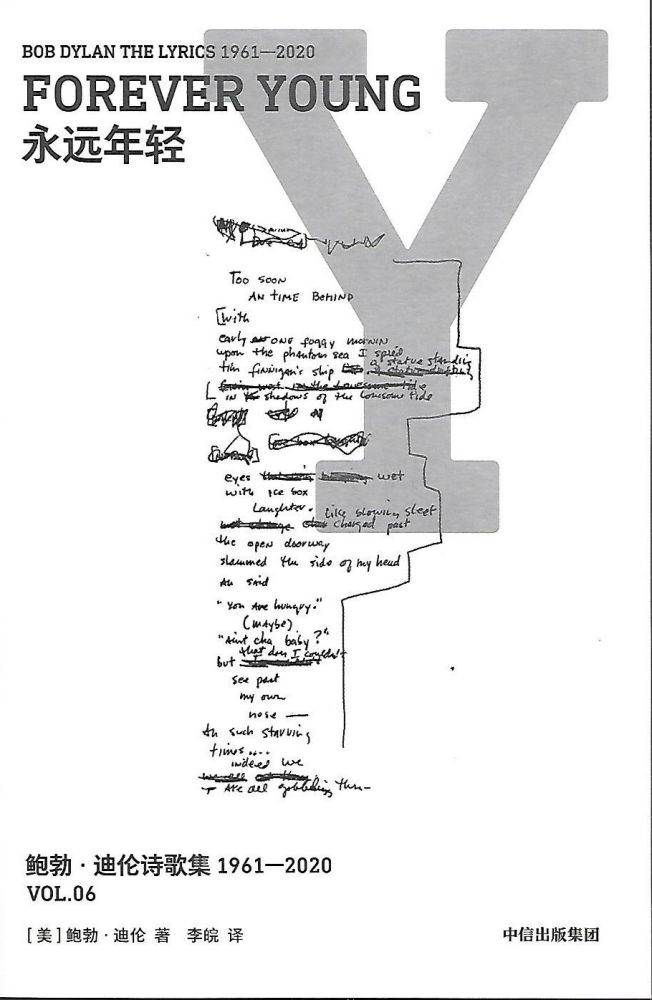 BOB DYLAN THE LYRICS 1961—2020
FOREVER YOUNG
永远年轻
Y
Too soon
An time Behind
[with
early one foggy mornin
upon the phantom sea I spied
tim finnigan's ship a statue standing
in shadows of the lonesome tide
eyes wet
with ice box
Laughter. Like slowing sleet
charged past
the open doorway
slammed the side of my head
An said
"You Are hungry."
(maybe)
"Aint cha baby?"
that does I couldn't
but
see past
my own
nose —
An such starving
times....
indeed we
Are all gobbling thru—
鲍勃·迪伦诗歌集 1961—2020
VOL.06
[美]鲍勃·迪伦 著 李皖 译
中信出版集团